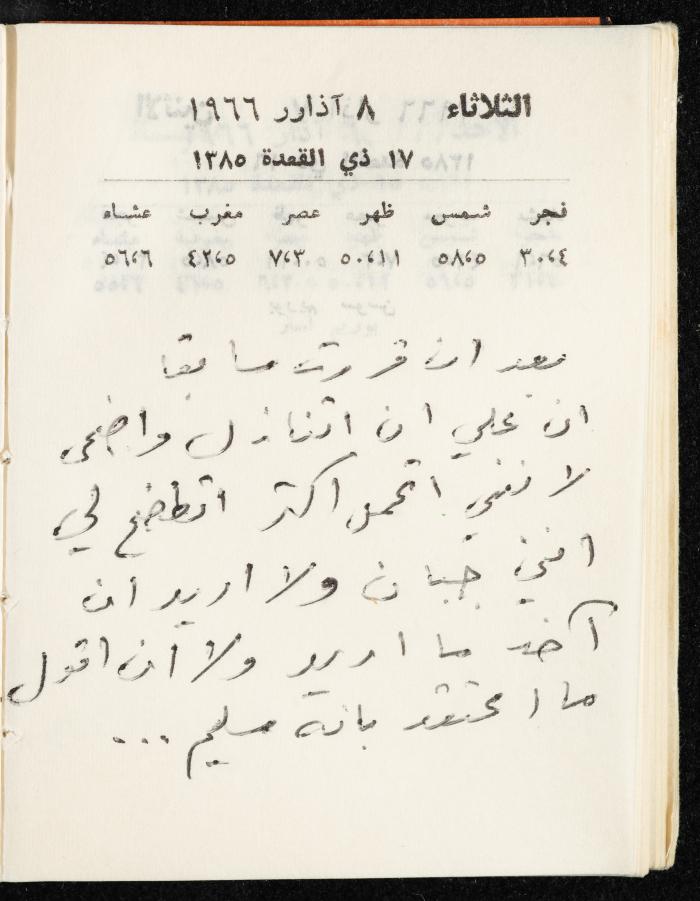 الثلاثاء ٨ آذاور ١٩٦٦
١٧ ذي القعدة ١٣٨٥
فجر شمس ظهر عصر مغرب عشاء
٣٠،٤ ٥٨،٥ ٥٠،١١ ٧،٣ ٤٢،٥ ٥٦،٦
بعد ان قررت سابقا
ان علي ان اتنازل واضحى
لانني اتحمل اكثر اتضح لي
انني جبان ولا اريد ان
آخذ ما اريد ولا ان اقول
ما اعتقد بانه سليم ...